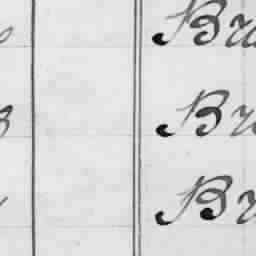 Bra
3 Br
Br